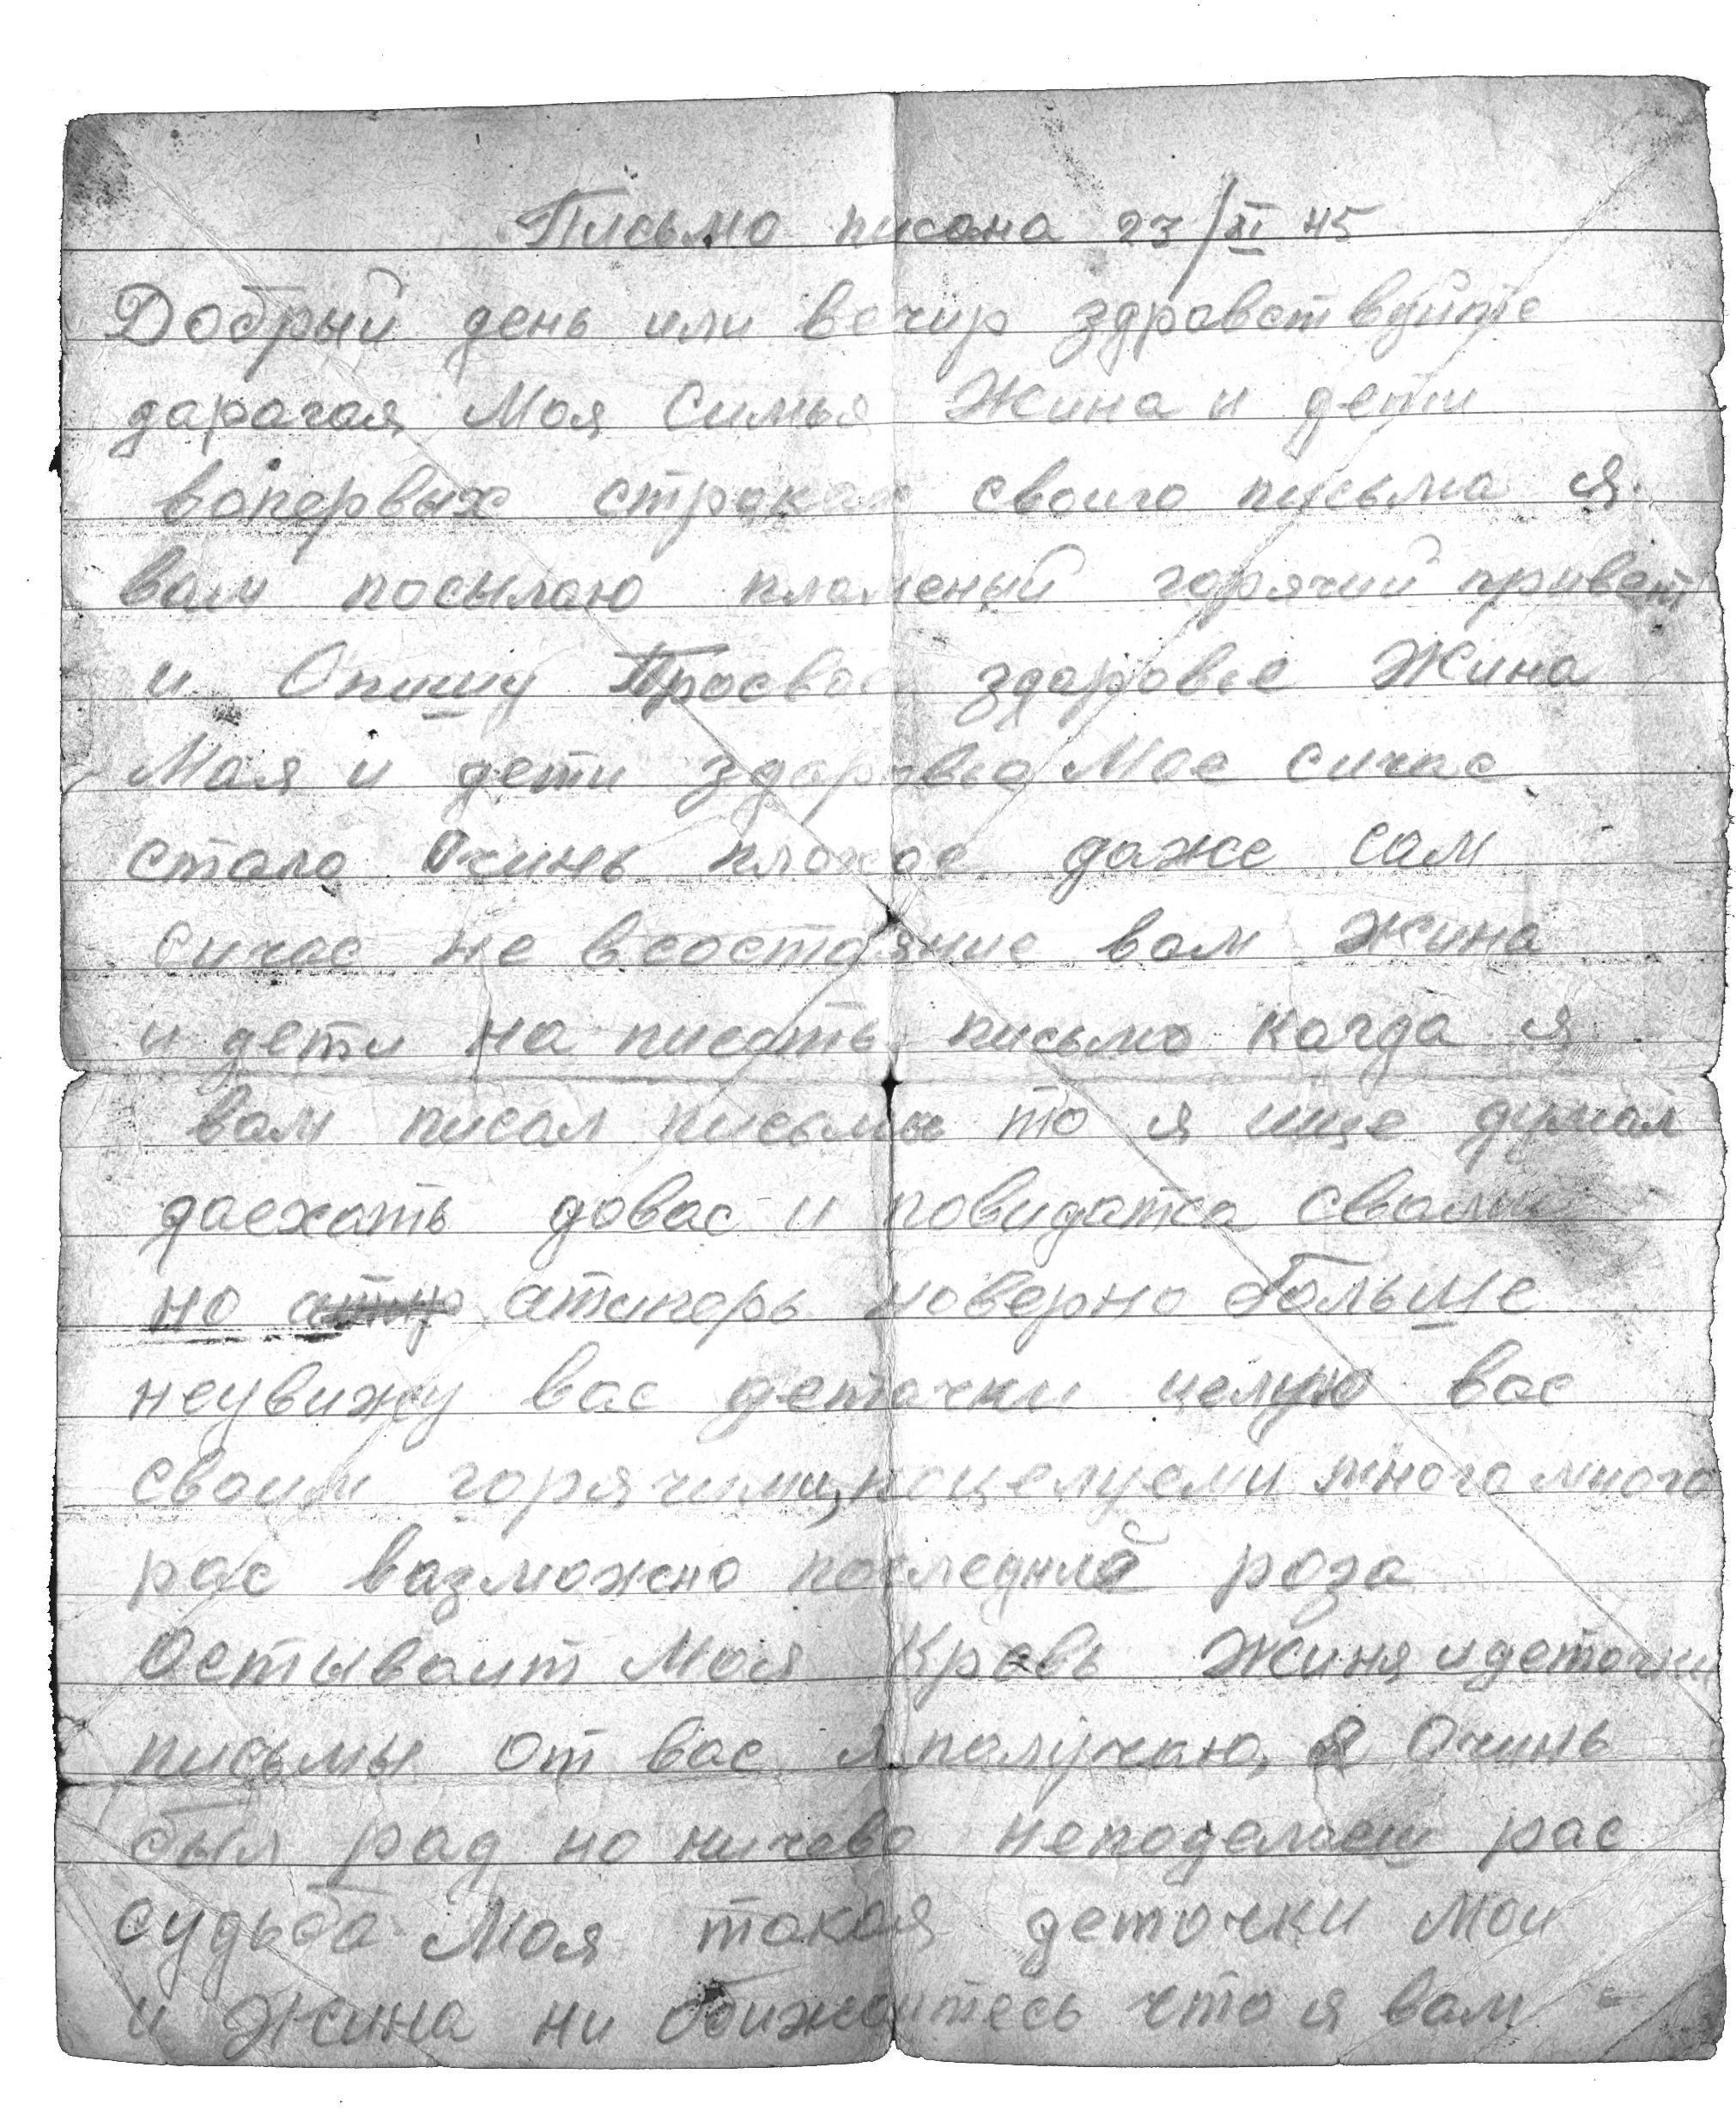 Письмо писана 23/XI 45
Добрый день или вечир здравствуйте
дарагая Моя Симья Жина и дети
вопервых строках своиго письма я
вам посылаю пламеный горячий привет
и Опишу Просвое здаровье Жина
Мая и дети здаровье Мое сичас
стало Очинь плохое даже сам
сичас не всостаяние вам жина
и дети на писать письмо когда я
вам писал письмы то я ище думал
даехать довас и повидатса свами
но атиперь наверно больше
неувижу вас деточки целую вас
своим горячими поцелуеми много много
рас вазможно последние раза
Остываит Моя Кровь Жиня идеточки
письмы От вас я палучаю, я Очинь
был рад но ничево неподелаеш рас
судьба Моя такая деточки Мои
и Жина ни обижайтесь что я вам